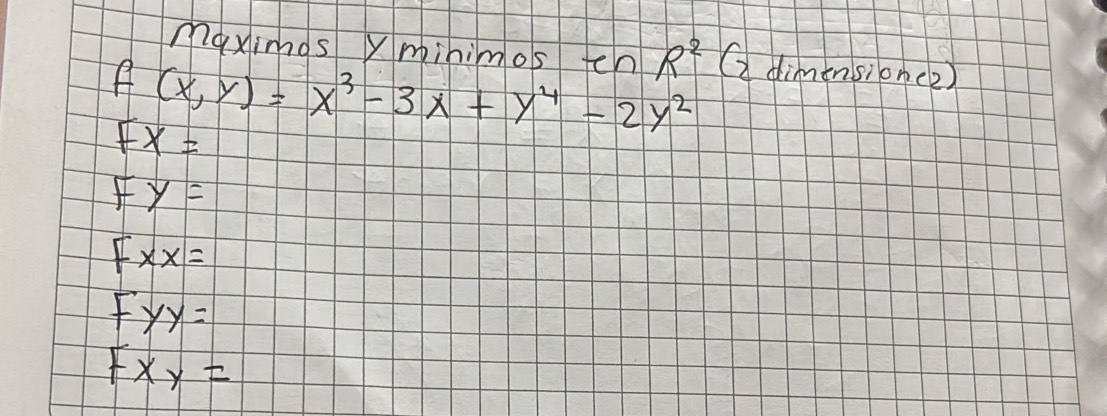 Maximos y minimos en R² (2 dimensione2)
f (x, y) = x³ - 3x + y⁴ - 2y²
Fx =
Fy =
Fxx =
Fyy =
Fxy =